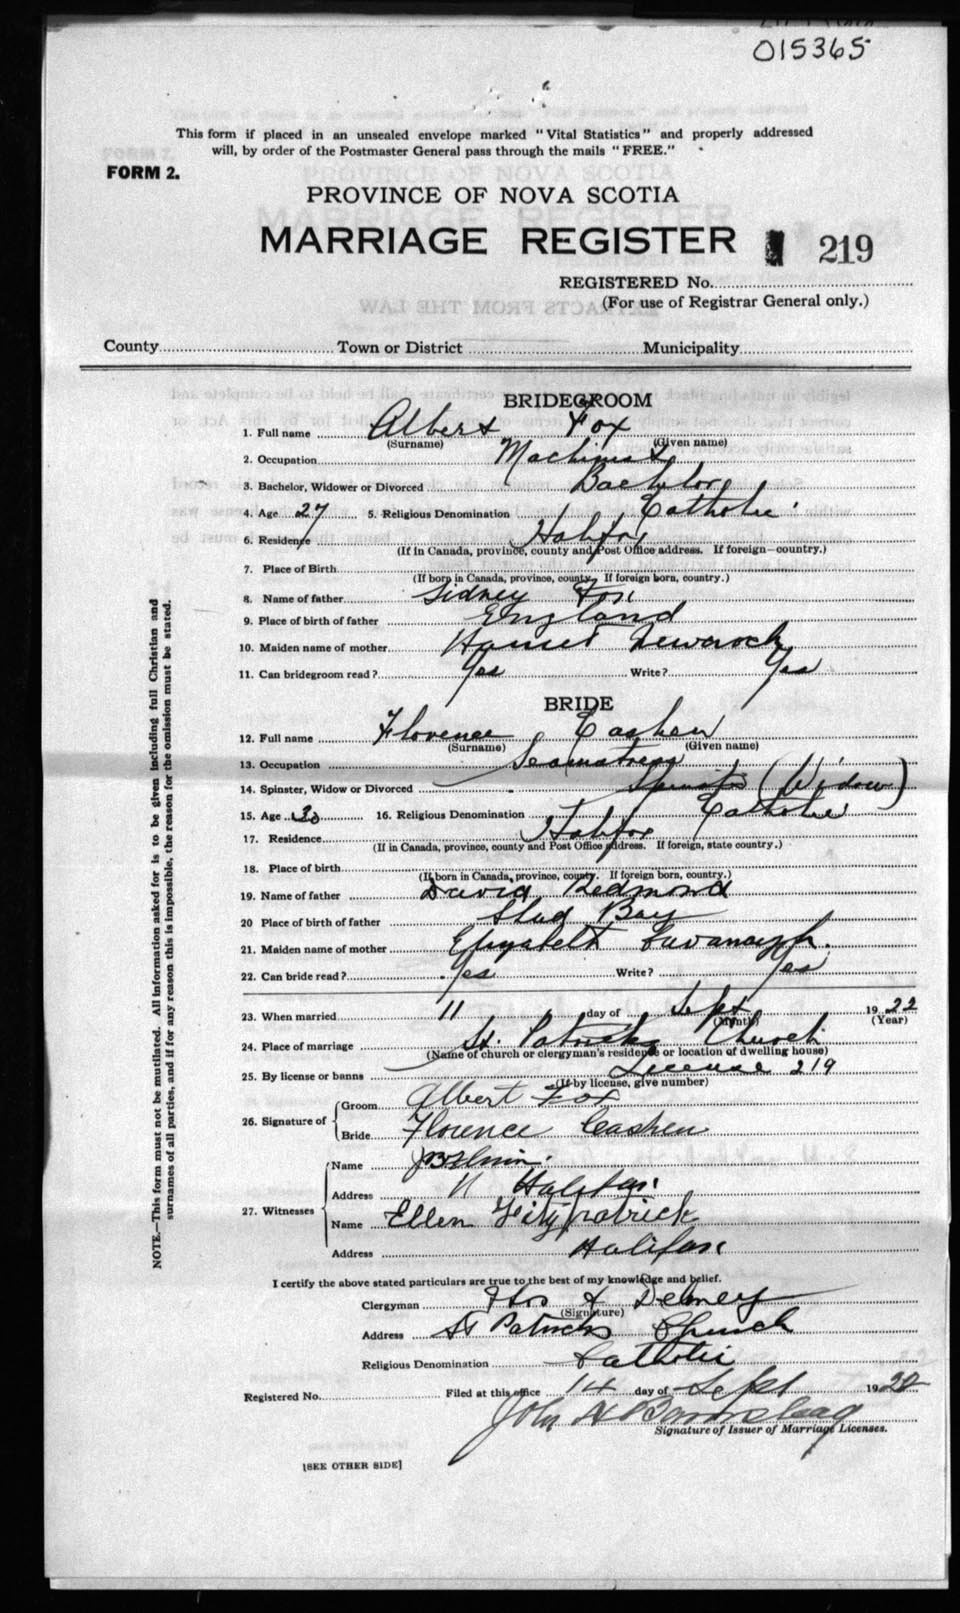 015365
This form if placed in an unsealed envelope marked "Vital Statistics" and properly addressed
will, by order of the Postmaster General pass through the mails "FREE."
FORM 2.
PROVINCE OF NOVA SCOTIA
MARRIAGE REGISTER 219
REGISTERED No.
(For use of Registrar General only.)
County Town or District Municipality
BRIDEGROOM
1. Full name Albert Fox
(Surname) (Given name)
2. Occupation Machinist
3. Bachelor, Widower or Divorced Bachelor
4. Age 27 5. Religious Denomination Catholic
6. Residence Halifax
(If in Canada, province, county and Post Office address. If foreign—country.)
7. Place of Birth
(If born in Canada, province, county. If foreign born, country.)
8. Name of father Sidney Fox
9. Place of birth of father England
10. Maiden name of mother
11. Can bridegroom read? Yes Write? Yes
BRIDE
12. Full name Florence Cashen
(Surname) (Given name)
13. Occupation Seamstress
14. Spinster, Widow or Divorced Spinster (Widow)
15. Age 30 16. Religious Denomination Catholic
17. Residence Halifax
(If in Canada, province, county and Post Office address. If foreign, state country.)
18. Place of birth
(If born in Canada, province, county. If foreign born, country.)
19. Name of father David Redmond
20 Place of birth of father Bay
21. Maiden name of mother Elizabeth Cavanaugh.
22. Can bride read? Yes Write? Yes
23. When married 11 day of Sept 1922
(Month) (Year)
24. Place of marriage St. Patricks Church
(Name of church or clergyman's residence or location of dwelling house)
25. By license or banns License 219
(If by license, give number)
26. Signature of Groom Albert Fox
Bride Florence Cashen
27. Witnesses
Name
Address Halifax
Name Ellen Fitzpatrick
Address Halifax
I certify the above stated particulars are true to the best of my knowledge and belief.
Clergyman
(Signature)
Address St Patricks Church
Religious Denomination Catholic
Registered No. Filed at this office 14 day of Sept 1922
John
Signature of Issuer of Marriage Licenses.
[SEE OTHER SIDE]
NOTE.—This form must not be mutilated. All information asked for is to be given including full Christian and
surnames of all parties, and if for any reason this is impossible, the reason for the omission must be stated.